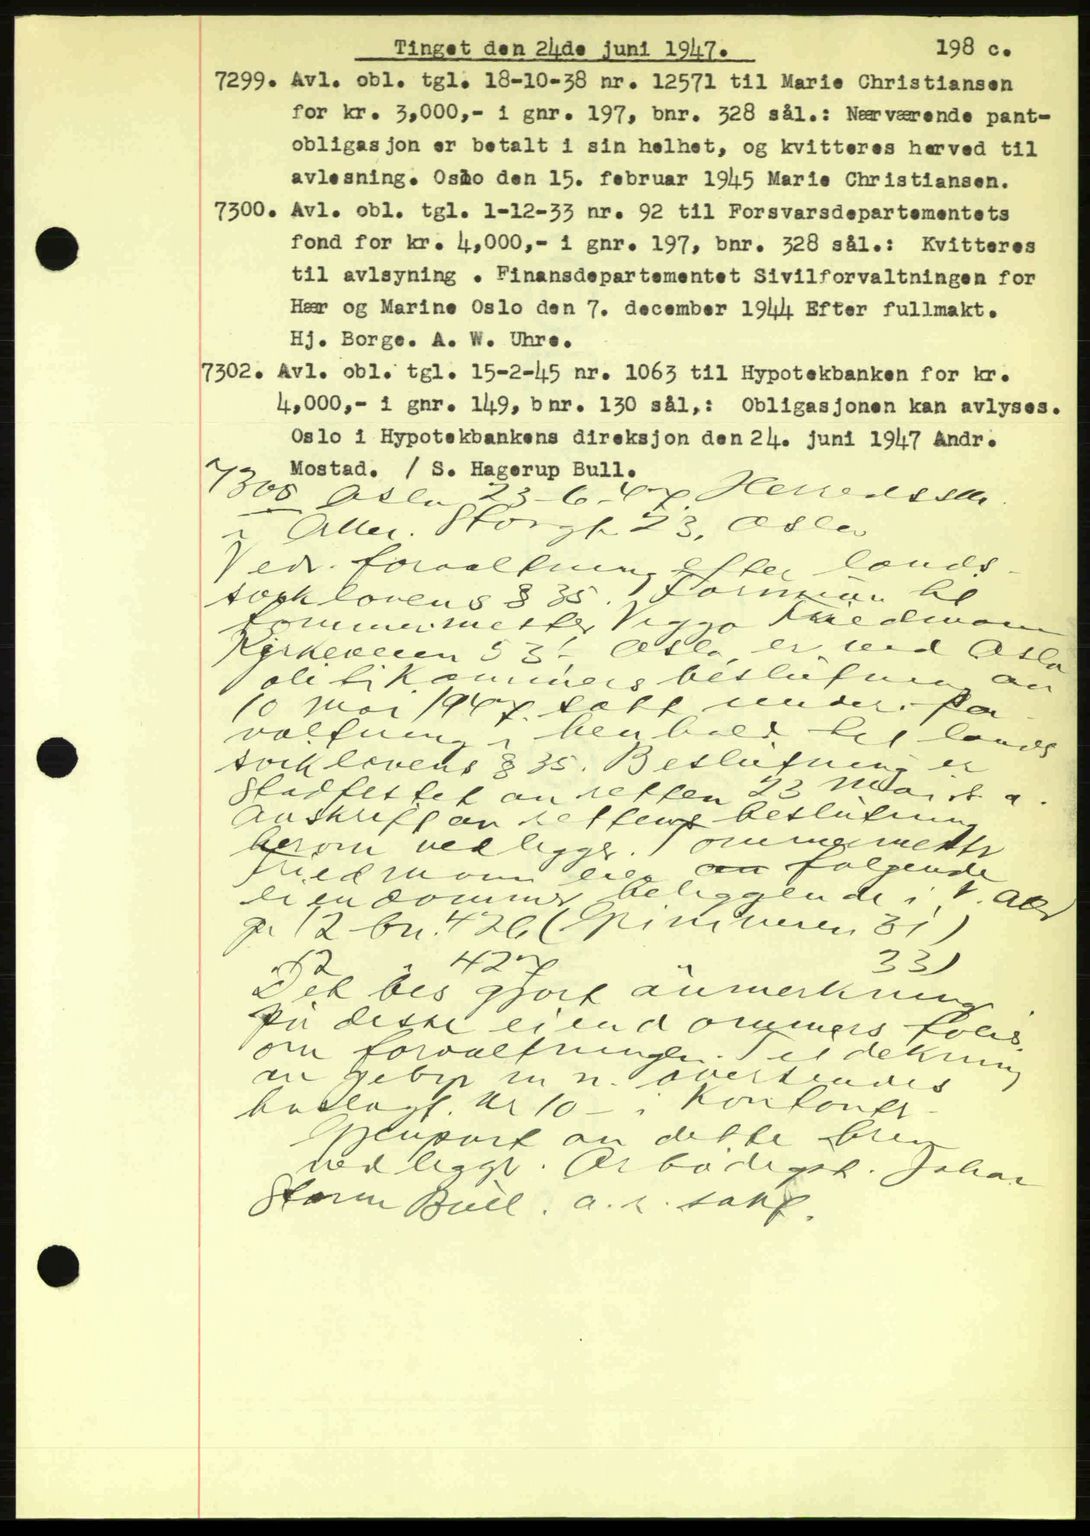 Tinget den 24de juni 1947. 198 c.
7299. Avl. obl. tgl. 18-10-38 nr. 12571 til Marie Christiansen
for kr. 3,000,- i gnr. 197, bnr. 328 sål.: Nærværende pant-
obligasjon er betalt i sin helhet, og kvitteres herved til
avlesning. Oslo den 15. februar 1945 Marie Christiansen.
7300. Avl. obl. tgl. 1-12-33 nr. 92 til Forsvarsdepartementets
fond for kr. 4,000,- i gnr. 197, bnr. 328 sål.: Kvitteres
til avlsyning . Finansdepartementet Sivilforvaltningen for
Hær og Marine Oslo den 7. december 1944 Efter fullmakt.
Hj. Borge. A. W. Uhre.
7302. Avl. obl. tgl. 15-2-45 nr. 1063 til Hypotekbanken for kr.
4,000,- i gnr. 149, bnr. 130 sål,: Obligasjonen kan avlyses.
Oslo i Hypotekbankens direksjon den 24. juni 1947 Andr.
Mostad. / S. Hagerup Bull.
7305 Oslo 23-6-47. Herredsskr.
i Aker. Storgt 23, Oslo
Vedr. forvaltning efter lands-
sviklovens § 35. Formuen til
tømmermester Viggo Friedmann
Kirkeveien 53, Oslo er ved Oslo
politikammers beslutning av
10 mai 1947 satt under for-
valtning i henhold til lands
sviklovens § 35. Beslutning er
stadfestet av retten 23 mai d. a.
Avskrift av rettens beslutning
herom vedlegges. Tømmermester
Friedmann eier følgende
eiendommer beliggende i V. Aker
gr 12 bn. 426 ( 31)
" 12 " 427 33)
Det bes gjort anmerkning
på disse eiendommers folio
om forvaltningen. Til dekning
av gebyr m v. oversendes
vedlagt kr 10 - i kontanter.
Gjenpart av dette brev
vedlegges. Ærbødigst. Johan
Storm Bull. o. r. sakf.